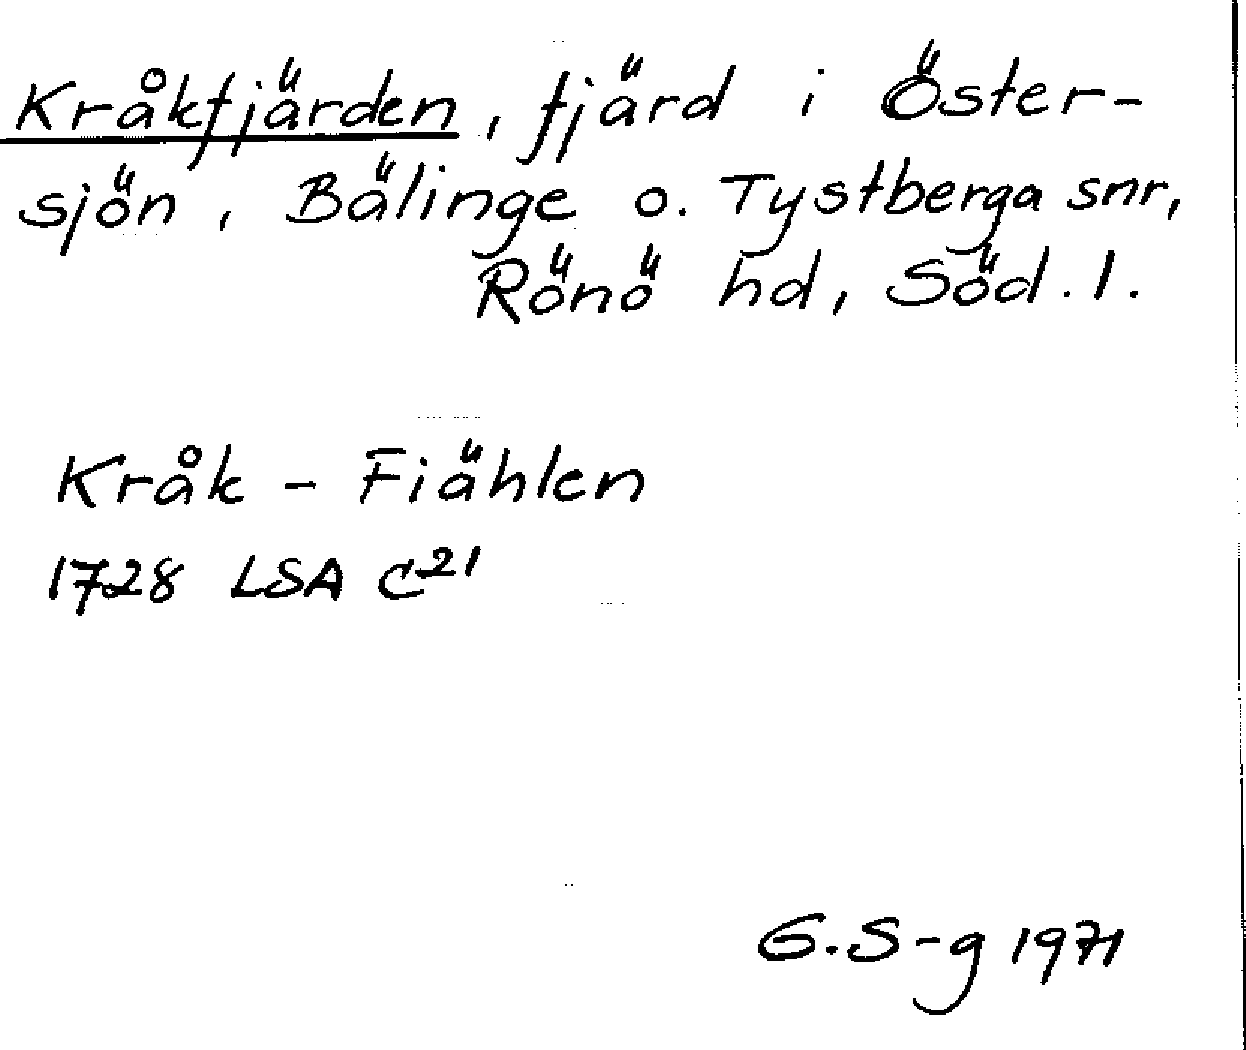 Kråkfjärden, fjärd i Öster-
sjön, Bälinge o. Tystberga snr,
Rönö hd, Söd. l.
Kråk - Fiählen
1728 LSA C²¹
G.S-g 1971